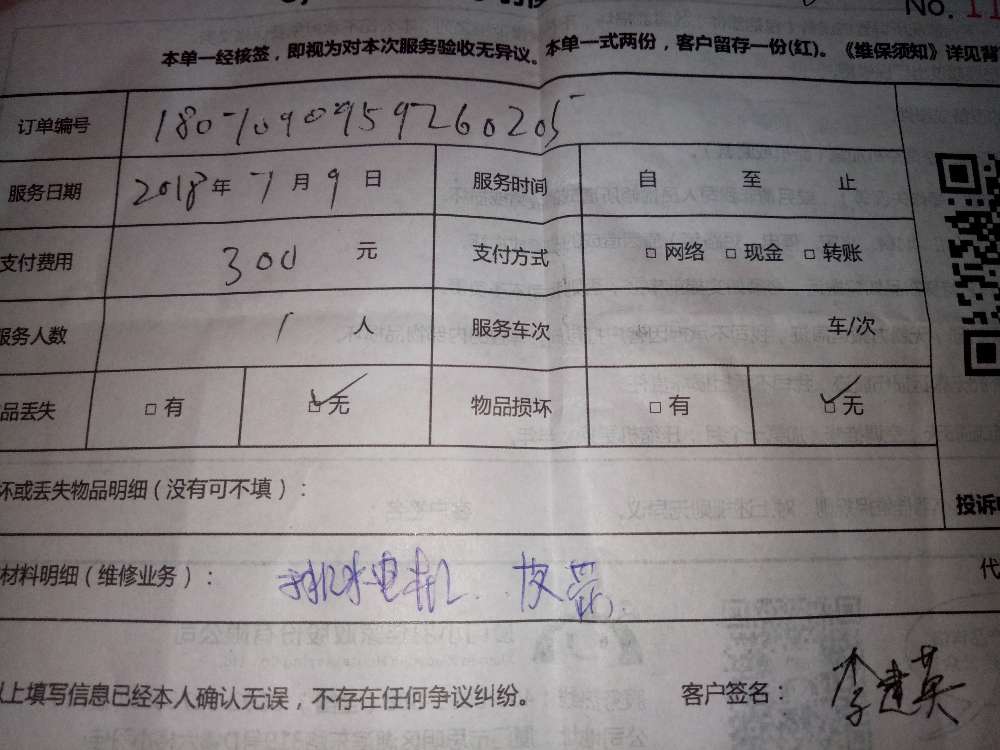 No. 11
本单一经核签，即视为对本次服务验收无异议。本单一式两份，客户留存一份(红)。《维保须知》详见背
订单编号 1807090959260205
服务日期 2018年 7月 9日 服务时间 自 至 止
支付费用 300 元 支付方式 □ 网络 □ 现金 □ 转账
服务人数 1 人 服务车次 车/次
品丢失 □ 有 □ 无 物品损坏 □ 有 □ 无
坏或丢失物品明细（没有可不填）：
投诉
材料明细（维修业务）： 排水电机 皮 代
以上填写信息已经本人确认无误，不存在任何争议纠纷。 客户签名：李建英